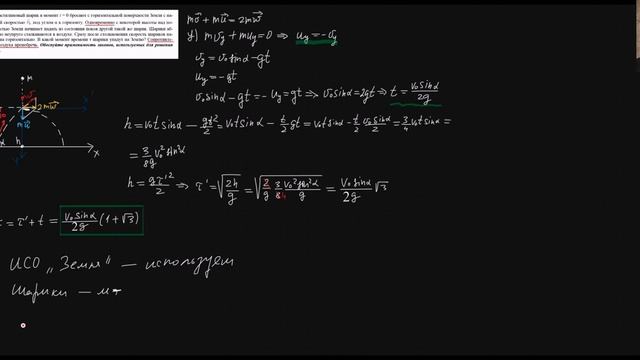 стилиновый шарик в момент t = 0 бросают с горизонтальной поверхности Земли с на-
й скоростью v₀ под углом α к горизонту. Одновременно с некоторой высоты над по-
стью Земли начинает падать из состояния покоя другой такой же шарик. Шарики аб-
но неупруго сталкиваются в воздухе. Сразу после столкновения скорость шариков на-
на горизонтально. В какой момент времени τ шарики упадут на Землю? Сопротивле-
оздуха пренебречь. Обоснуйте применимость законов, используемых для решения
mv⃗ + mu⃗ = 2mw⃗
y) mv_y + mu_y = 0 ⇒ u_y = -v_y
v_y = v₀ sinα - gt
u_y = -gt
v₀ sinα - gt = -u_y = gt ⇒ v₀ sinα = 2gt ⇒ t = v₀ sinα / 2g
h = v₀ t sinα - gt²/2 = v₀ t sinα - t/2 gt = v₀ t sinα - t/2 v₀ sinα/2 = 3/4 v₀ t sinα =
= 3/8g v₀² sin²α
h = gτ'²/2 ⇒ τ' = √(2h/g) = √(2/g 3/84 v₀² sin²α/g) = v₀ sinα/2g √3
= τ' + t = v₀ sinα/2g (1 + √3)
ИСО „Земля" — используем
Шарики — мт
M
mv⃗
2mw⃗
mu⃗
h
X